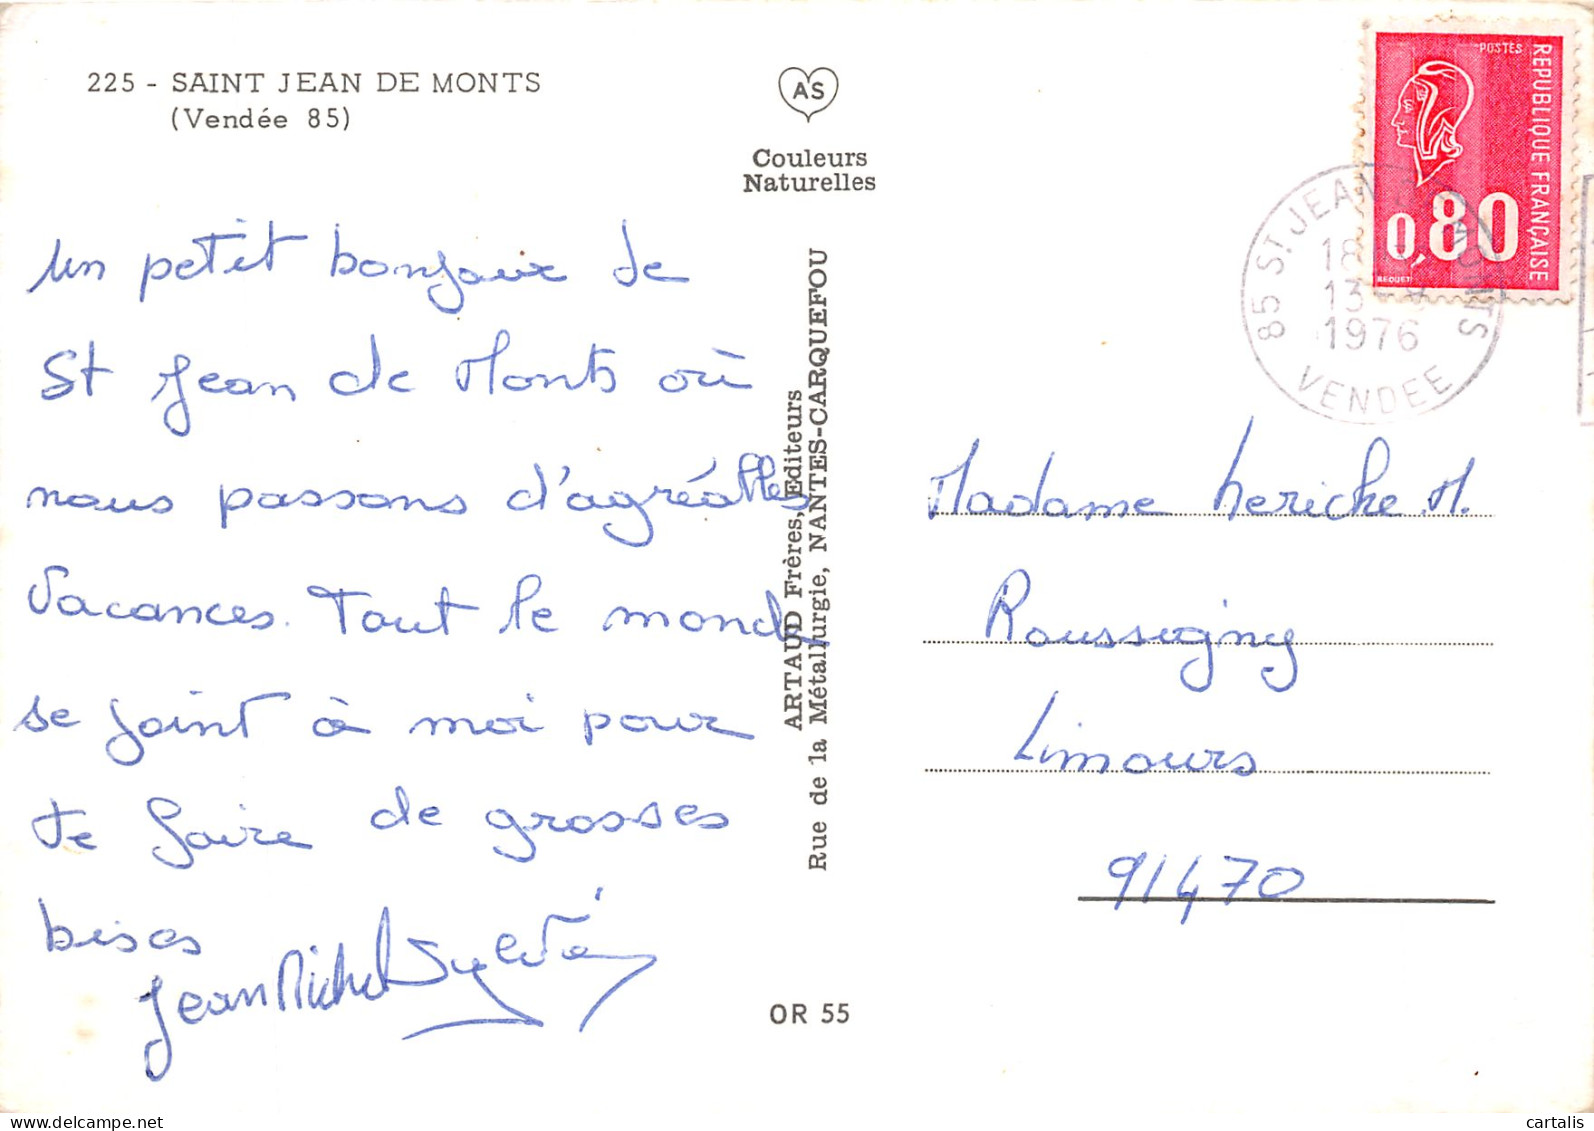 225 - SAINT JEAN DE MONTS
(Vendée 85)
AS
Couleurs
Naturelles
un petit bonjour de
St Jean de Monts où
nous passons d'agréables
vacances. Tout le monde
se joint à moi pour
te faire de grosses
bises
Jean Michel Sylvia
ARTAUD Frères, Editeurs
Rue de la Métallurgie, NANTES-CARQUEFOU
OR 55
POSTES
REPUBLIQUE FRANÇAISE
0,80
BEQUET
85 ST. JEAN DE MONTS
18
13
1976
VENDEE
Madame Lericke M.
Roussigny
Limours
91470
delcampe.net
cartalis